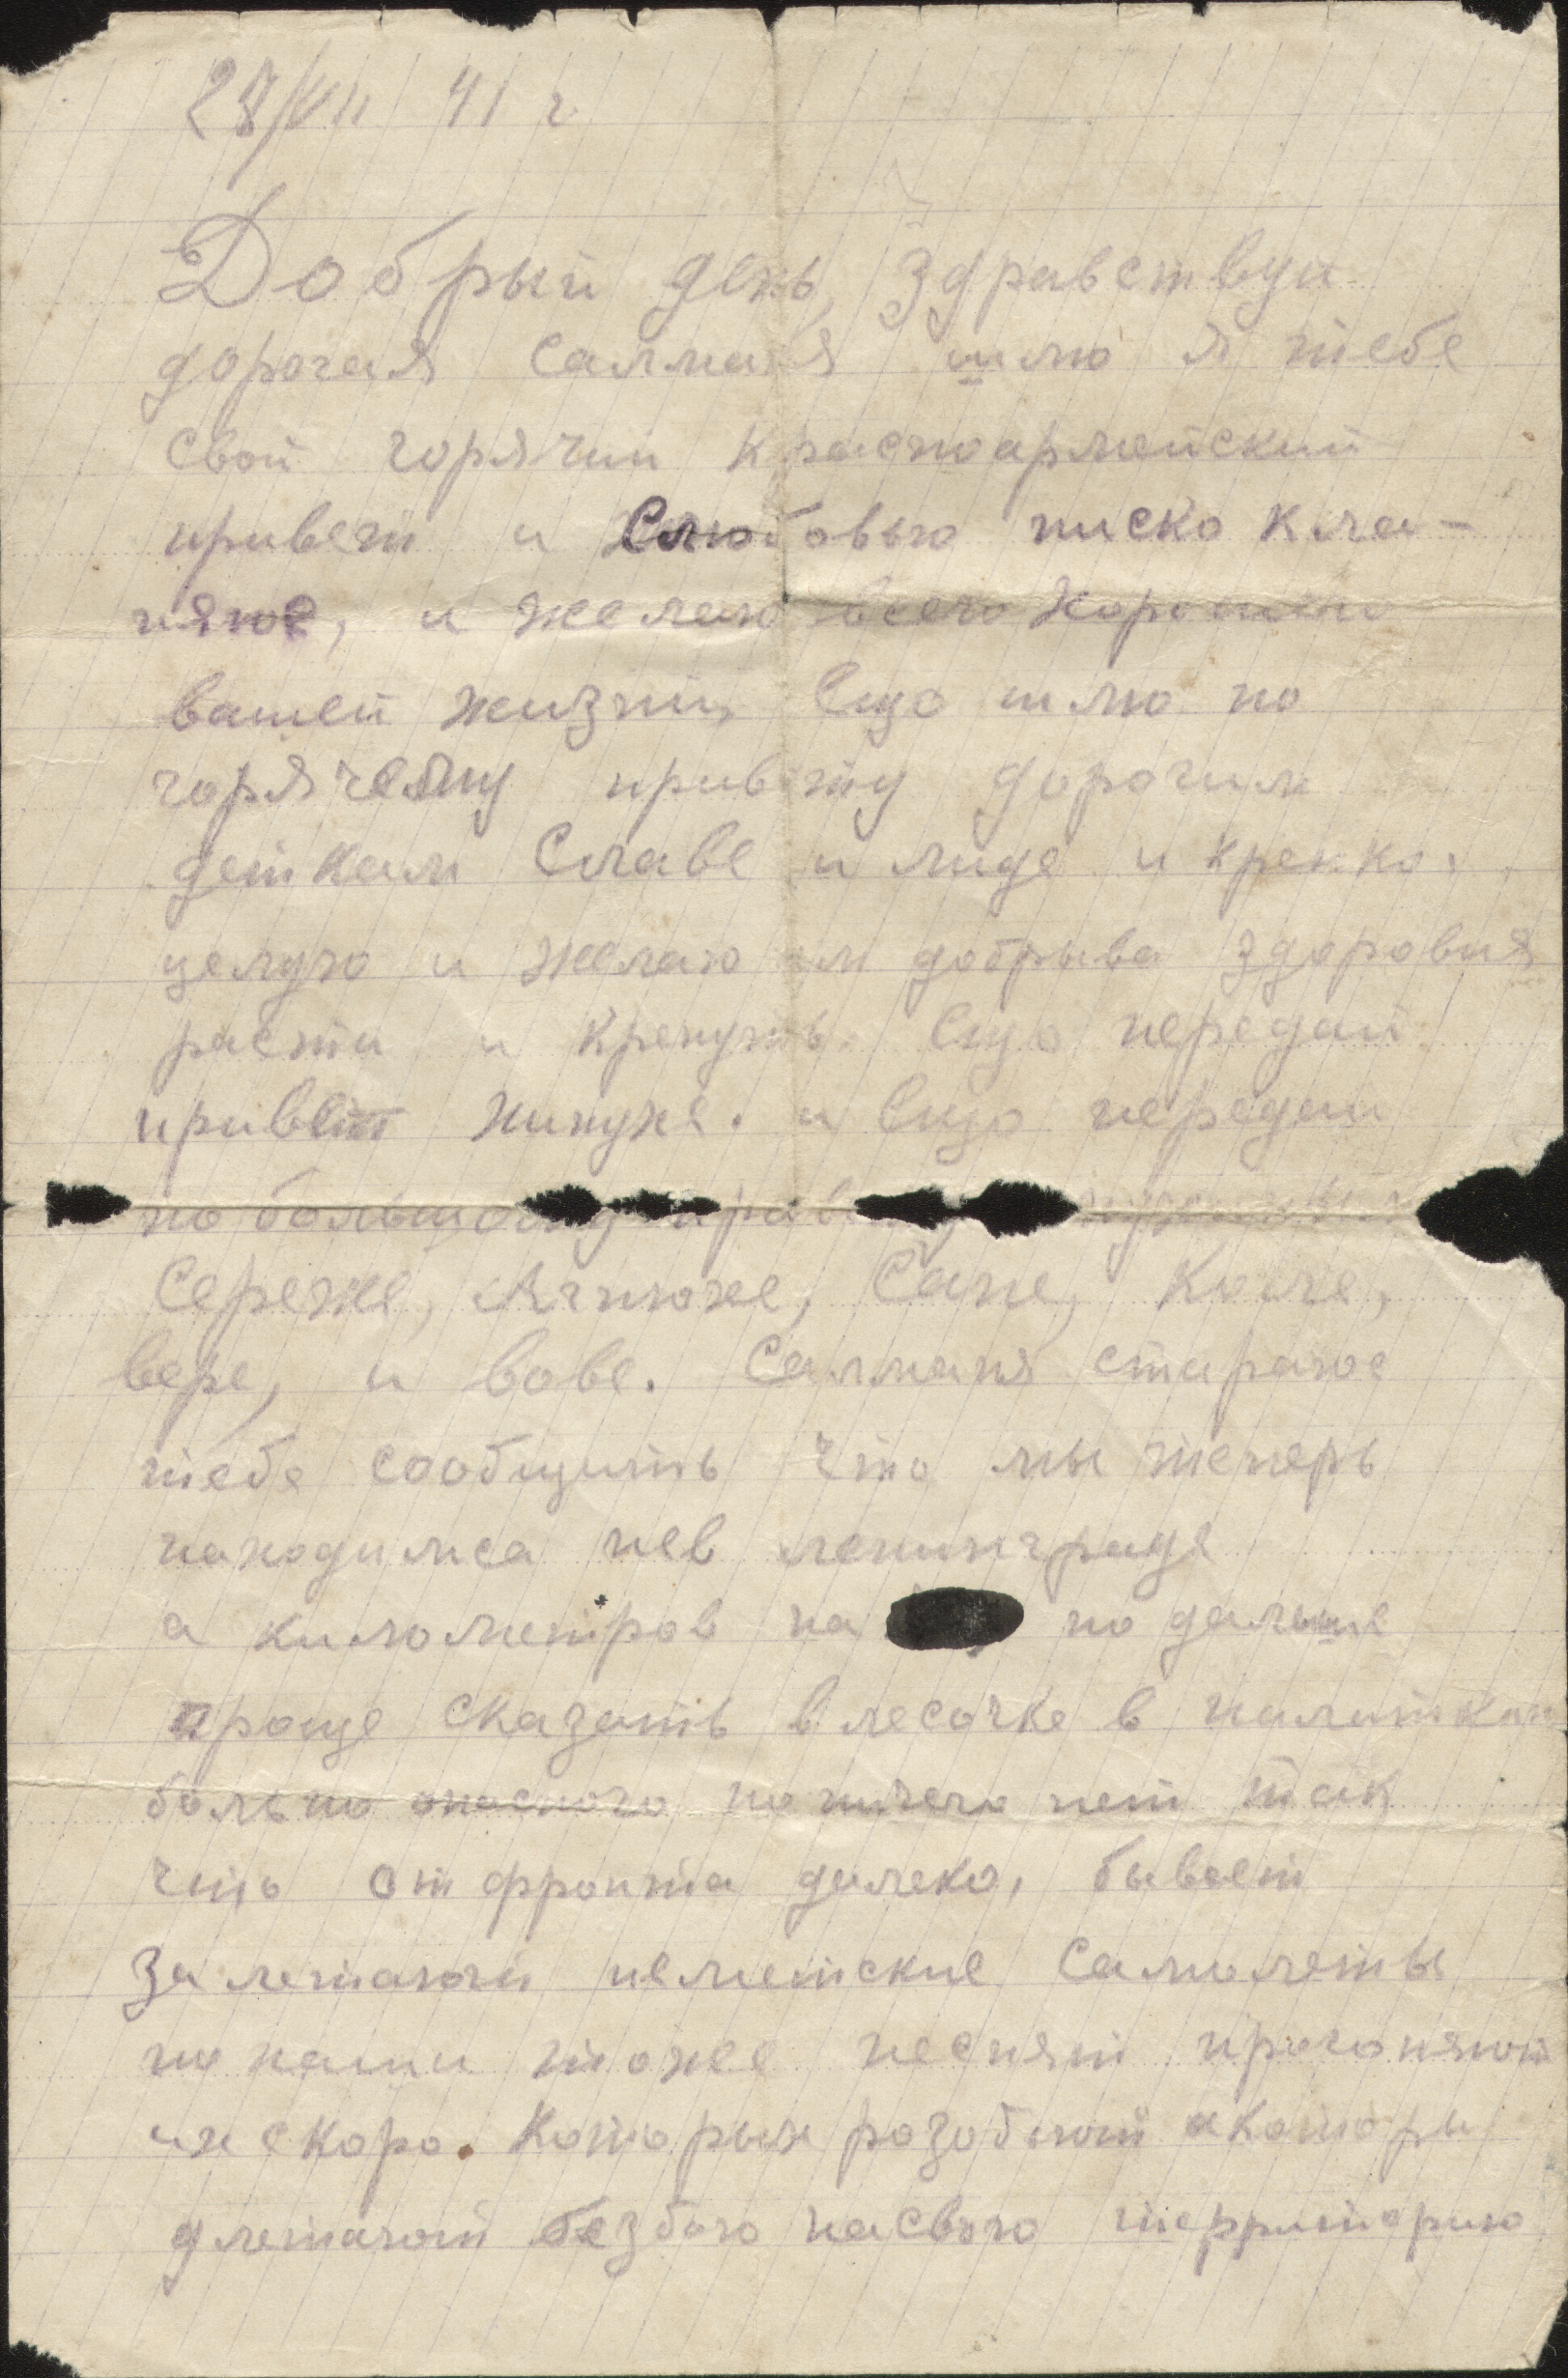 28/VII 41 г
Добрый день, здравствуй
дорогая Салманя шлю я тебе
свой горячий красноармейский
привет и Слюбовью ниско кла-
няюс, и желаю всего хорошего
вашей жизни, ещо шлю по
горячему привету дорогим
деткам Славе и лиде и крепко
целую и желаю им добрыва здоровия
расти и крепнуть. ещо передай
привет
и ещо передай
по большому
Сереже, Сане, Коле,
вере, и вове. Салманя стараюс
тебе сообщить что мы теперь
находимса нев ленинграде
а километров на по дальше
проще сказать в лесочке в палатках
больно опасного но ничего нет так
что от фронта далеко, бывает
залетают неметские самолеты
но наши тоже неспят прогоняют
их скоро. Которых разобьют а которы
улетают безбою насвою территорию